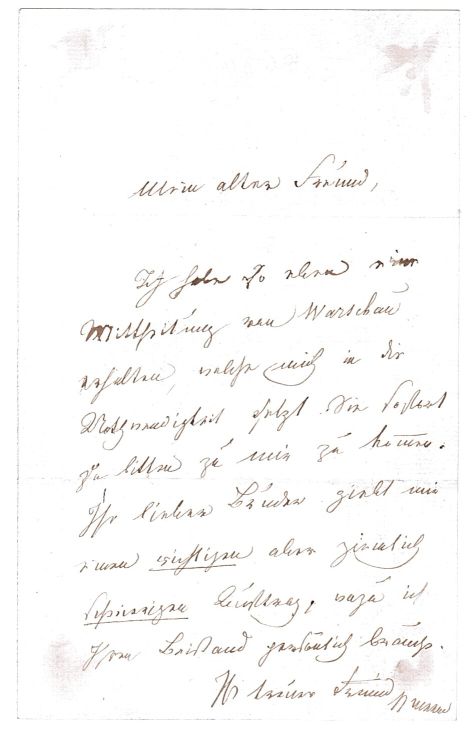 Mein alter Freund,
Ich habe so eben eine
Mittheilung von Warschau
erhalten, welche mich in die
Nothwendigkeit setzt Sie sofort
zu bitten zu mir zu kommen.
Ihr lieber Bruder giebt mir
einen wichtigen aber ziemlich
schwierigen Auftrag, wozu ich
Ihren Beistand persönlich brauche.
Ihr treuer Freund